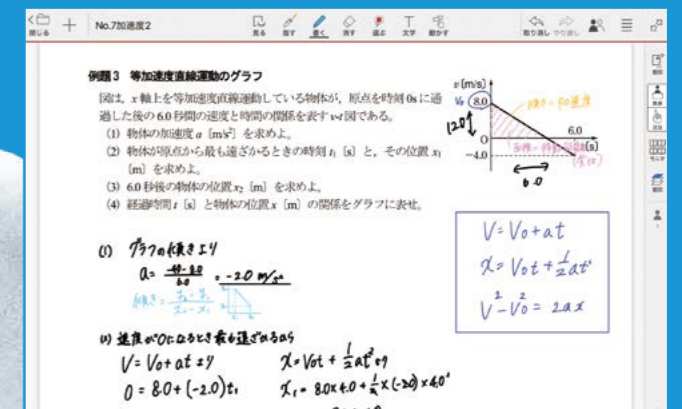 閉じる
No.7加速度2
見る
指す
書く
消す
選ぶ
文字
動かす
取り消し
やり直し
例題3 等加速度直線運動のグラフ
図は，x軸上を等加速度直線運動している物体が，原点を時刻0sに通
過した後の6.0秒間の速度と時間の関係を表すv-t図である。
(1) 物体の加速度a〔m/s²〕を求めよ。
(2) 物体が原点から最も遠ざかるときの時刻t₁〔s〕と，その位置x₁
〔m〕を求めよ。
(3) 6.0秒後の物体の位置x₂〔m〕を求めよ。
(4) 経過時間t〔s〕と物体の位置x〔m〕の関係をグラフに表せ。
v〔m/s〕
V₀ 8.0
傾き=加速度
12.0
O
6.0
t〔s〕
-4.0
6.0
V=V₀+at
x=V₀t+½at²
V²-V₀²=2ax
(1) グラフの傾きより
a= -4.0-8.0 / 6.0 = -2.0 m/s²
(2) 速度が0になるとき最も遠ざかるから
V=V₀+at より
x=V₀t+½at²より
0=8.0+(-2.0)t₁
x₁=8.0×4.0+½×(-2.0)×4.0²